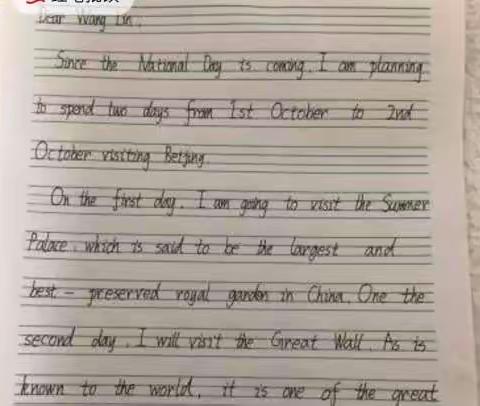 Dear Wang Lin,
Since the National Day is coming, I am planning
to spend two days from 1st October to 2nd
October visiting Beijing.
On the first day, I am going to visit the Summer
Palace, which is said to be the largest and
best-preserved royal garden in China. One the
second day, I will visit the Great Wall. As is
known to the world, it is one of the great